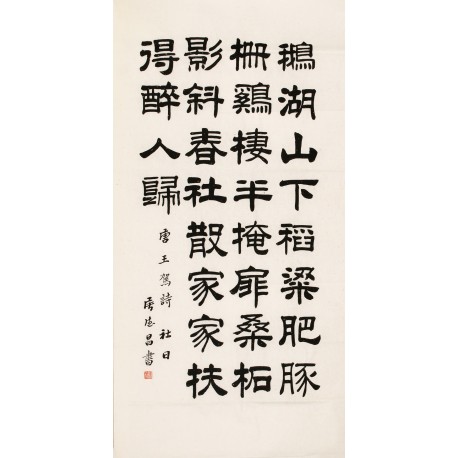 鵝湖山下稻梁肥豚
柵鷄棲半掩扉桑柘
影斜春社散家家扶
得醉人歸
唐王駕詩 社日
德昌書